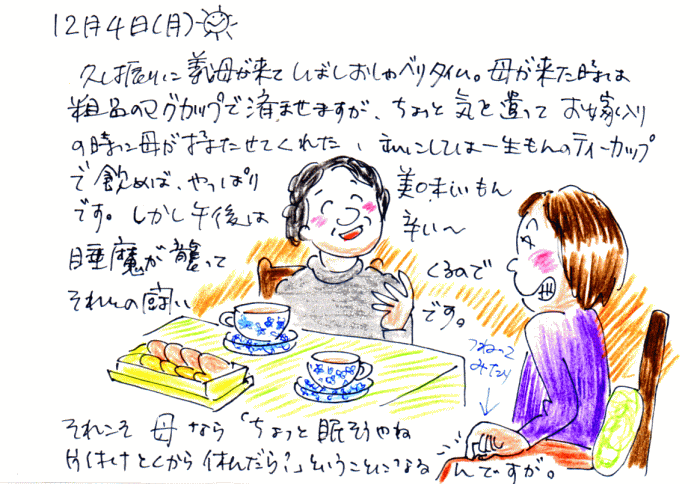 12月4日(月)
久し振りに義母が来てしばしおしゃべりタイム。母が来た時は
粗品のマグカップで済ませますが、ちょっと気を遣って お嫁入り
の時に母が持たせてくれた、私にしては一生もんのティーカップ
で飲めば、やっぱり 美味しいもん
です。しかし午後は 辛い〜
睡魔が襲って くるので
それとの闘い です。
つねって
みたり
それこそ 母なら「ちょっと眠そうやね
片付けとくから 休んだら?」ということになる んですが。